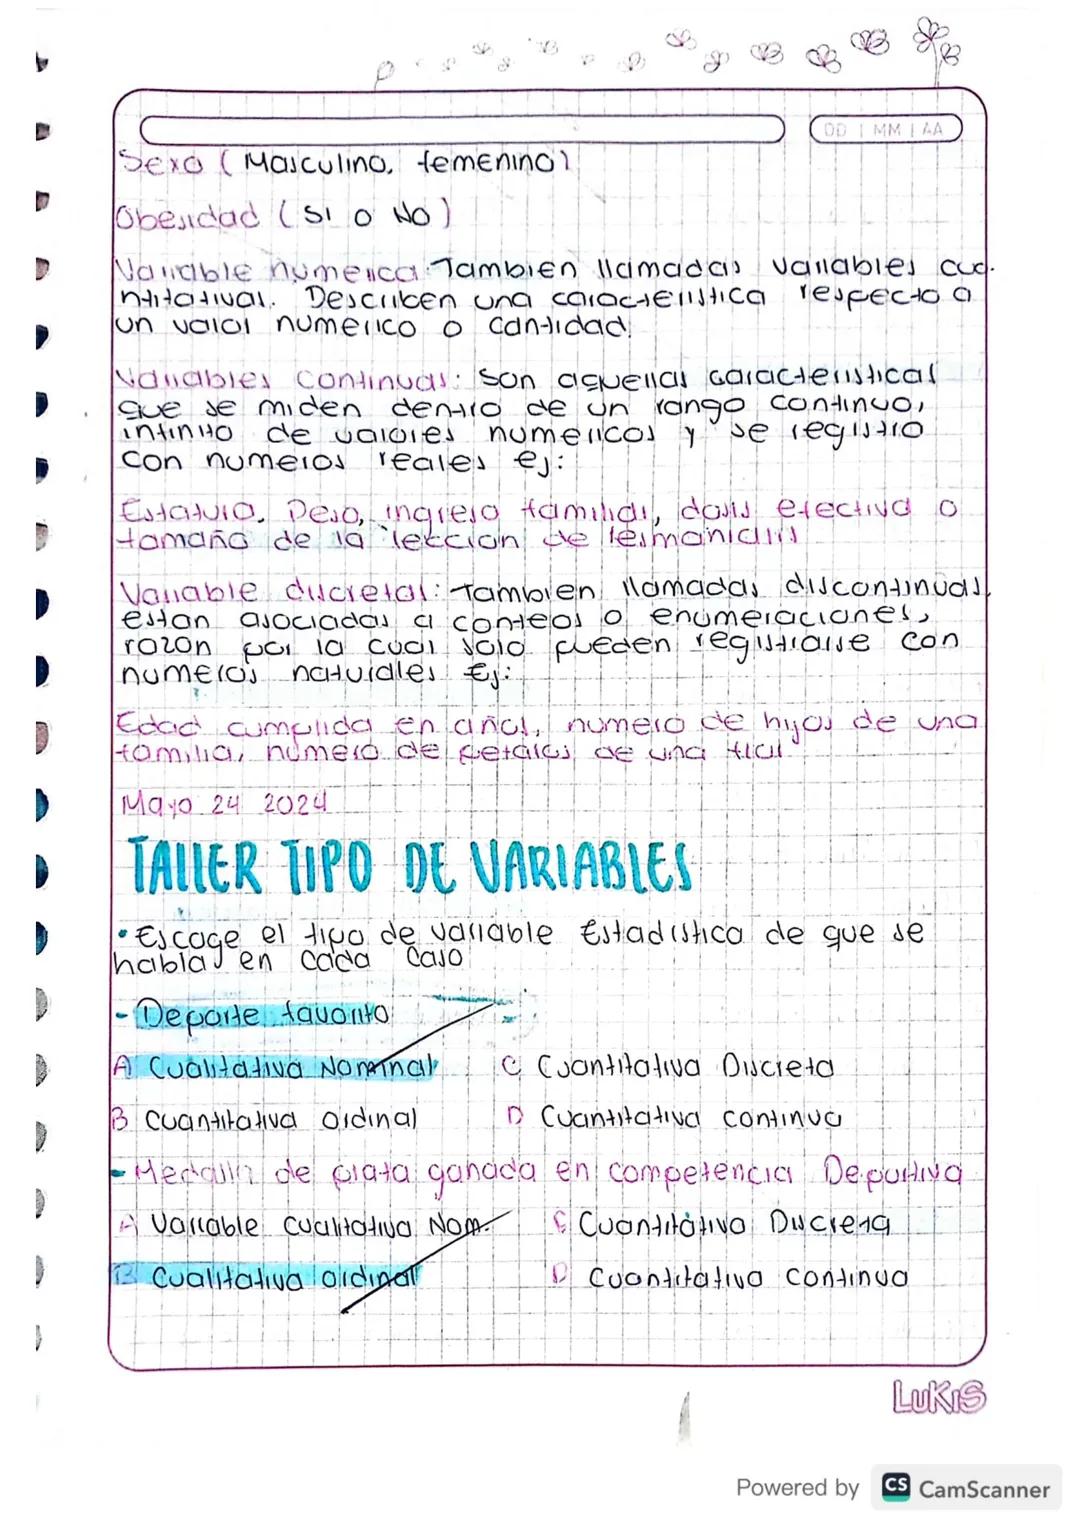 DD | MM | AA
Sexo ( Masculino, femenino)
Obesidad ( SI o No )
Variable numerica Tambien llamadas variables cua-
ntitativas. Describen una caracteristica respecto a
un valor numerico o cantidad.
Variables continuas: Son aquellas caracteristicas
que se miden dentro de un rango continuo,
infinito de valores numericos y se registro
con numeros reales ej:
Estatura, Peso, ingreso familiar, dosis efectiva o
tamaño de la leccion de leismaniasis
Variable discretas: Tambien llamadas discontinuas,
estan asociadas a conteos o enumeraciones,
razon por la cual solo pueden registrarse con
numeros naturales Ej:
Edad cumplida en años, numero de hijos de una
familia, numero de petalos de una flor
Mayo 24 2024
TALLER TIPO DE VARIABLES
• Escoge el tipo de variable Estadistica de que se
habla en cada caso
- Deporte favorito
A Cualitativa Nominal C Cuantitativa Discreta
B Cuantitativa ordinal D Cuantitativa continua
- Medalla de plata ganada en competencia Deportiva
A Variable cualitativa Nom. C Cuantitativa Discreta
B Cualitativa ordinal D Cuantitativa continua
LUKIS
Powered by CS CamScanner